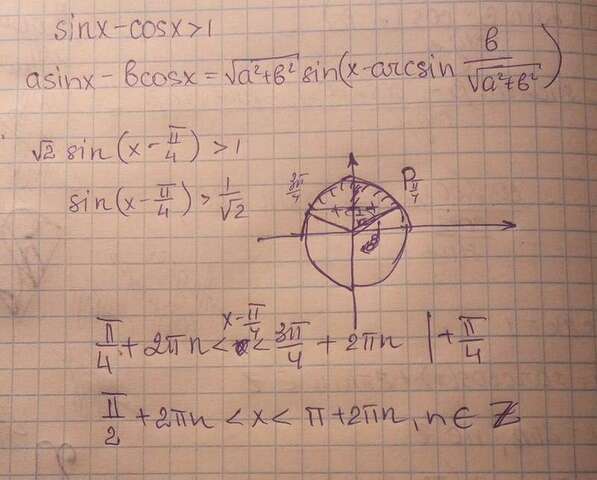 sinx-cosx>1
asinx-bcosx=√(a²+b²) sin(x-arcsin b/√(a²+b²))
√2 sin(x-π/4)>1
sin(x-π/4)>1/√2
3π/4
P π/4
π/4+2πn<x-π/4<3π/4+2πn |+π/4
π/2+2πn<x<π+2πn, n∈Z